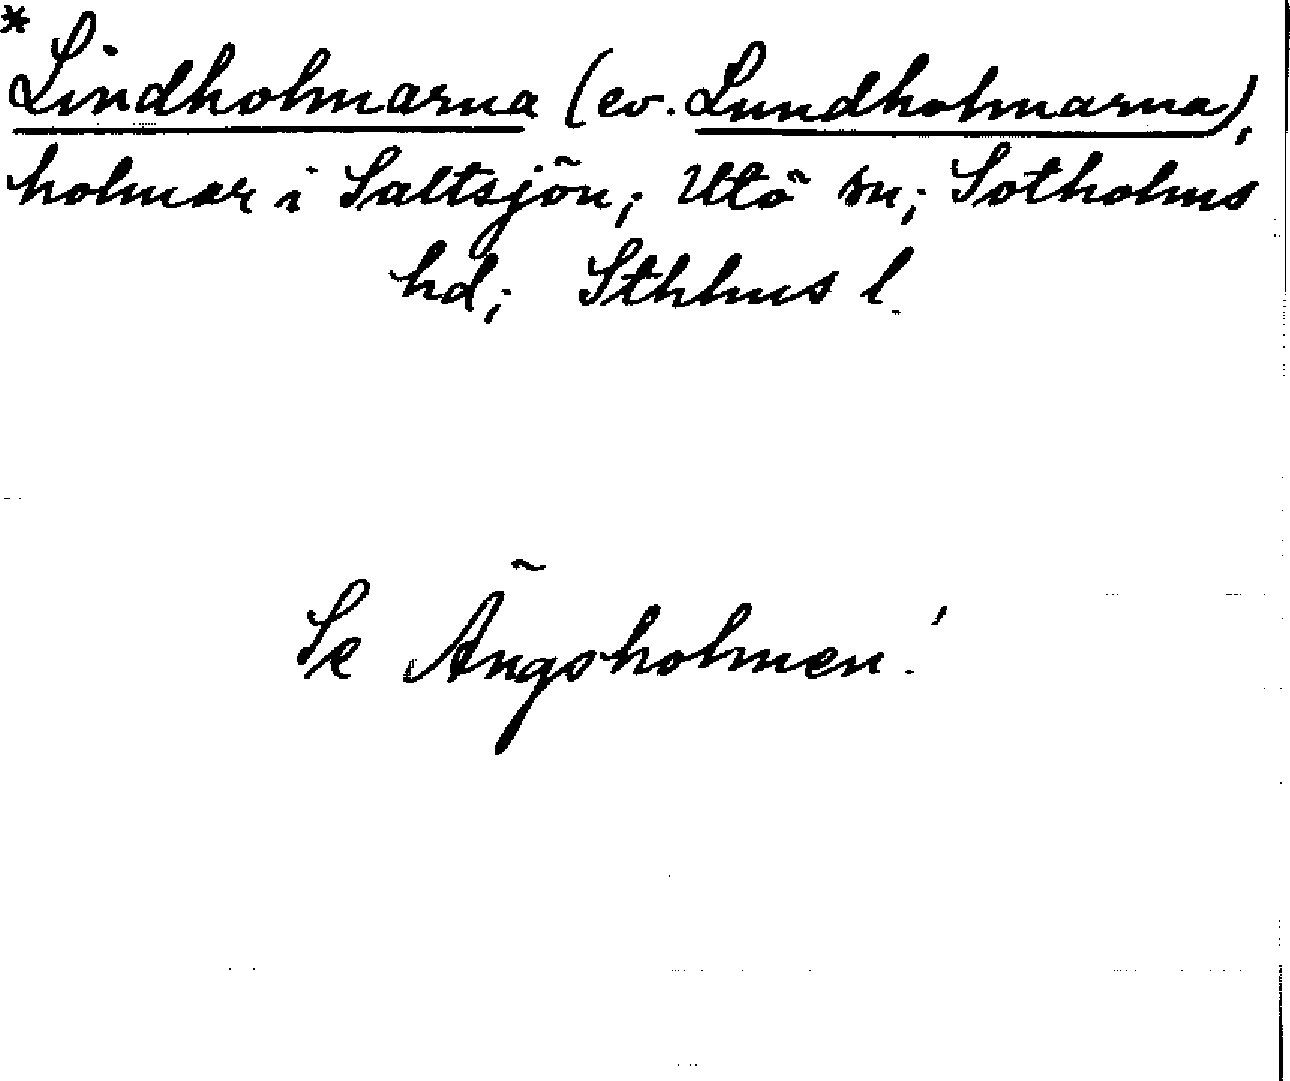 *
Lindholmarna (ev. Lundholmarna),
holmar i Saltsjön; Utö sn; Sotholms
hd; Sthlms l.
Se Ängsholmen!